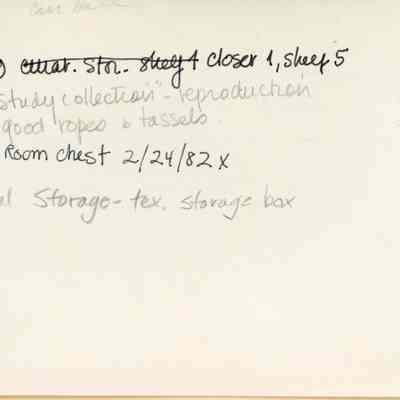 ) closer 1, sheef 5
study collection" - reproduction
good ropes & tassels.
Room chest 2/24/82 x
al Storage - tex. storage box